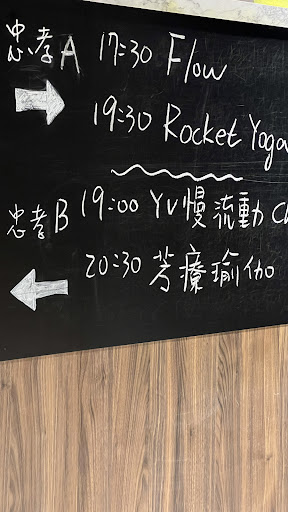 忠孝A 17:30 Flow
19:30 Rocket Yoga
忠孝B 19:00 YV慢流動
20:30 芳療瑜伽